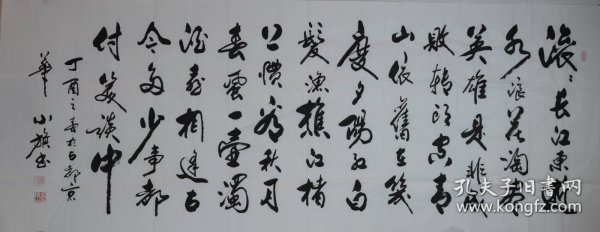 滚〻长江東逝
水浪花淘尽
英雄是非成
败转头空青
山依舊在幾
度夕陽红白
髮漁樵江渚
上惯看秋月
春風一壺濁
酒喜相逢古
今多少事都
付笑談中
丁酉之春於古都京
華小旗书
孔夫子旧书网
www.kongfz.com